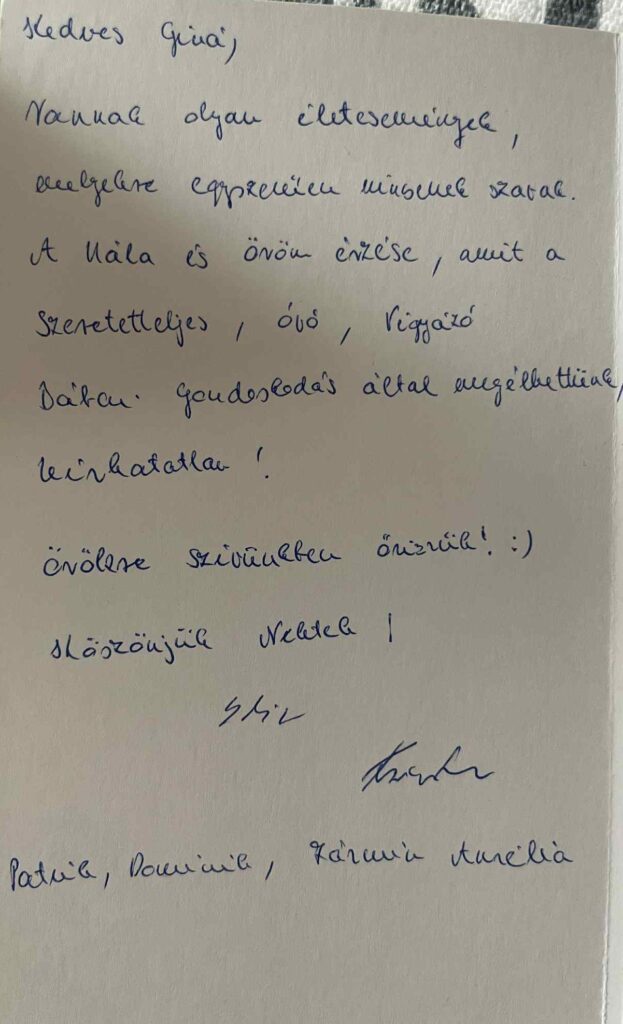 Kedves Gina,
Vannak olyan életesemények,
amelyekre egyszerűen nincsenek szavak.
A Hála és öröm érzése, amit a
szeretetteljes, óvó, vigyázó
Bátor. Gondoskodás által megélhettünk,
leírhatatlan!
Örökre szívünkben őrizzük! :)
Köszönjük Nektek!
Patrik, Dominik, Jázmin Aurélia